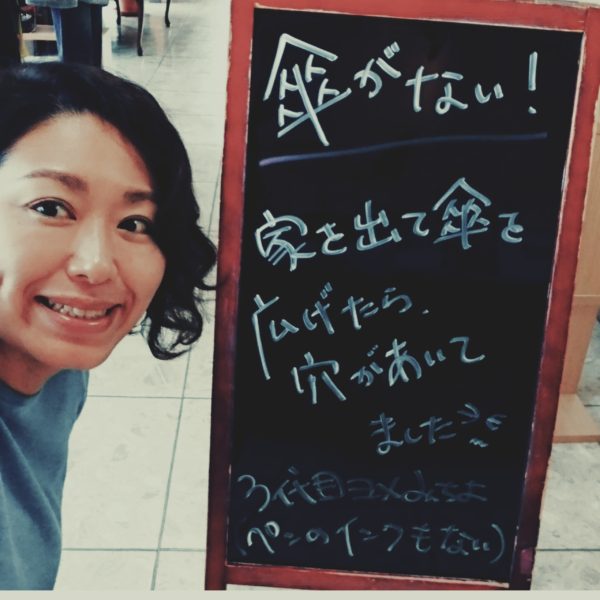 傘がない!
家を出て傘を
広げたら、
穴があいて
ました
3代目ヨメみちよ
(ペンのインクもない)